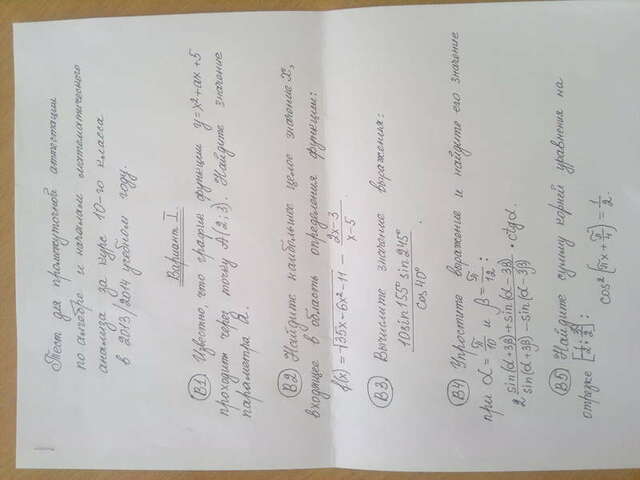 Тест для промежуточной аттестации
по алгебре и началам математического
анализа за курс 10-го класса
в 2013/2014 учебном году.
Вариант I.
В1 Известно, что график функции y=x²+ax+5
проходит через точку A(2;3). Найдите значение
параметра a.
В2 Найдите наибольшее целое значение x,
входящее в область определения функции:
f(x)=-√(35x-6x²-11) - (2x-3)/(x-5).
В3 Вычислите значение выражения:
(10sin155° sin245°)/(cos40°).
В4 Упростите выражение и найдите его значение
при α=π/10 и β=π/12:
2 (sin(α+3β)+sin(α-3β))/(sin(α+3β)-sin(α-3β)) · ctgα.
В5 Найдите сумму корней уравнения на
отрезке
cos²(πx+π/4)=1/2.